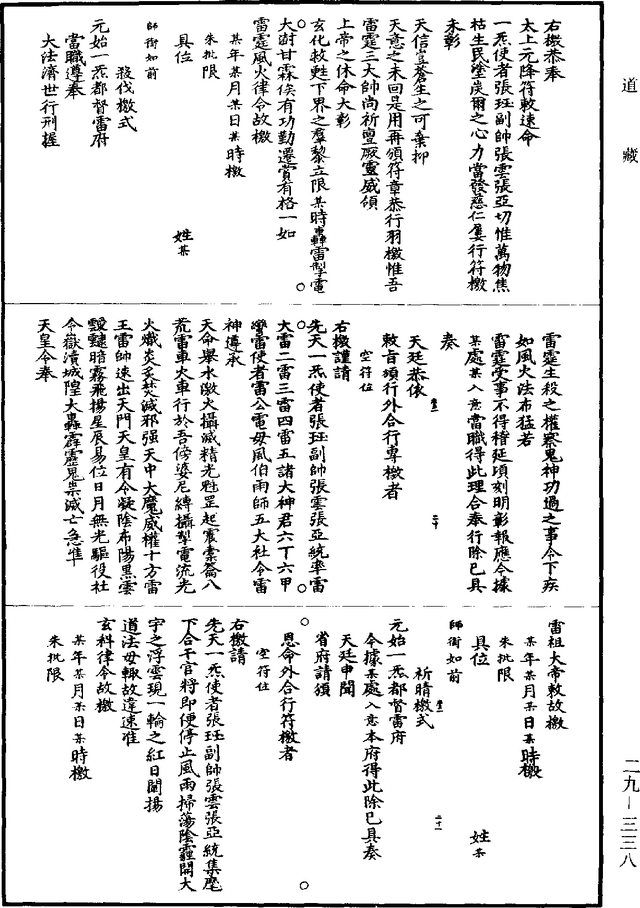 道藏
右檄恭奉
太上元降符敕速命
一炁使者張珏副帥張雲張亞切惟萬物焦
枯生民塗炭爾之心力當發慈仁屢行符檄
未彰
天信豈蒼生之可棄抑
天意之未回是用再頒符章恭行羽檄惟吾
雷霆三大帥尚祈亶厥靈威領
上帝之休命大彰
玄化救甦下界之羣黎立限某時轟雷掣電
大澍甘霖俟有功勤遷賞有格一如
雷霆風火律令故檄
某年某月某日某時檄
朱批限
具位 姓某
師銜如前
殺伐檄式
元始一炁都督雷府
當職遵奉
大法濟世行刑握
雷霆生殺之權察鬼神功過之事令下疾
如風火法布猛若
雷霆受事不得稽延頃刻明彰報應今據
某處某入意當職得此理合奉行除已具
奏
天廷恭俟
敕旨頒行外合行專檄者
空符位
右檄謹請
先天一炁使者張珏副帥張雲張亞統率雷
大雷二雷三雷四雷五諸大神君六丁六甲
蠻雷使者雷公電母風伯雨師五大社令雷
神傳承
天命舉水激火攝滅精光魁罡起震橐籥八
荒雷車火車行於吾傍婆尼縛攝掣電流光
火熾炎炙焚滅邪强天中大魔威權十方雷
王雷帥速出天門天皇有令凝陰布陽黑雲
靉靆暗霧飛揚星辰易位日月無光驅役社
令嶽瀆城隍大轟霹靂鬼祟滅亡急準
天皇令奉
雷祖大帝敕故檄
某年某月某日某時檄
朱批限
具位 姓某
師銜如前
祈晴檄式
元始一炁都督雷府
今據某處入意本府得此除已具奏
天廷申聞
省府請頒
恩命外合行符檄者
空符位
右檄請
先天一炁使者張珏副帥張雲張亞統集麾
下合干官將即便停止風雨掃蕩陰霾開大
宇之浮雲現一輪之紅日闡揚
道法毋輙故違速准
玄科律令故檄
某年某月某日某時檄
朱批限
二九—三三八